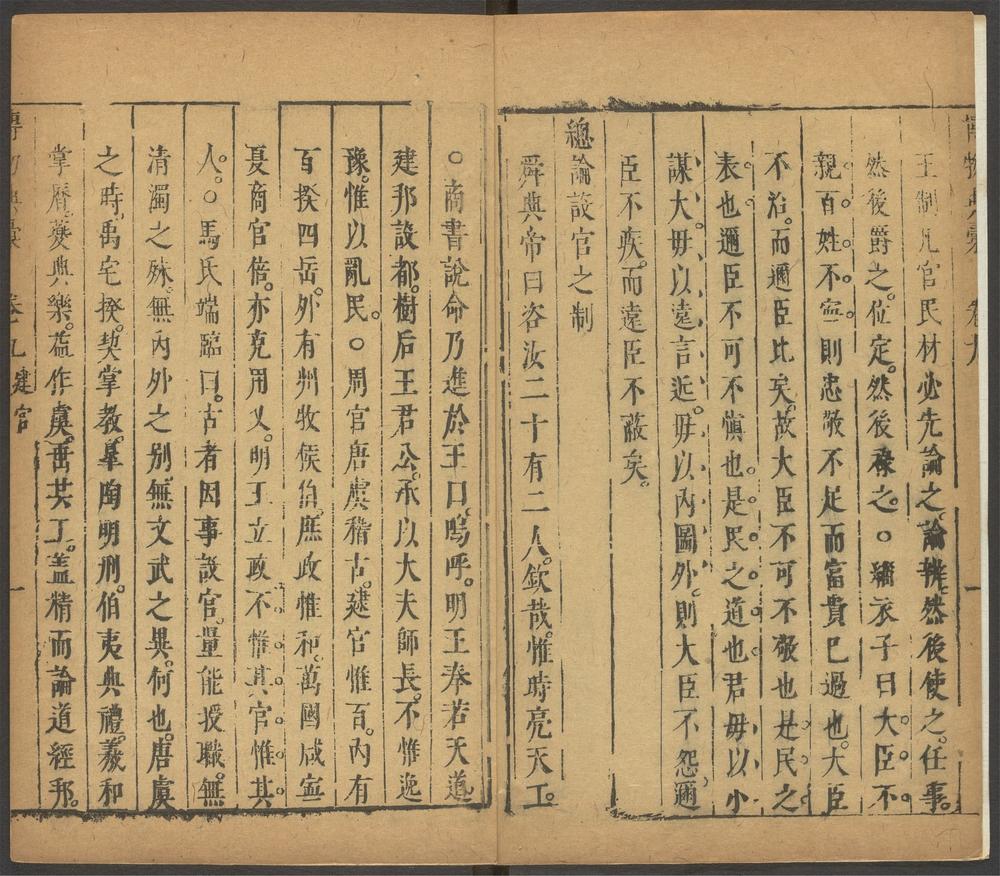 王制凡官民材必先論之論辨然後使之任事
然後爵之位定然後祿之○緇衣子曰大臣不
親百姓不寧則忠敬不足而富貴已過也大臣
不治而邇臣比矣故大臣不可不敬也是民之
表也邇臣不可不愼也是民之道也君毋以小
謀大毋以遠言近毋以內圖外則大臣不怨邇
臣不疾而遠臣不蔽矣
總論設官之制
舜典帝曰咨汝二十有二人欽哉惟時亮天工
○商書說命乃進於王曰嗚呼明王奉若天道
建邦設都樹后王君公承以大夫師長不惟逸
豫惟以亂民○周官唐虞稽古建官惟百內有
百揆四岳外有州牧侯伯庶政惟和萬國咸寧
夏商官倍亦克用乂明王立政不惟其官惟其
人○馬氏端臨曰古者因事設官量能授職無
清濁之殊無內外之別無文武之異何也唐虞
之時禹宅揆契掌教皋陶明刑伯夷典禮羲和
掌曆夔典樂益作虞垂共工蓋精而論道經邦
卷九建官 一